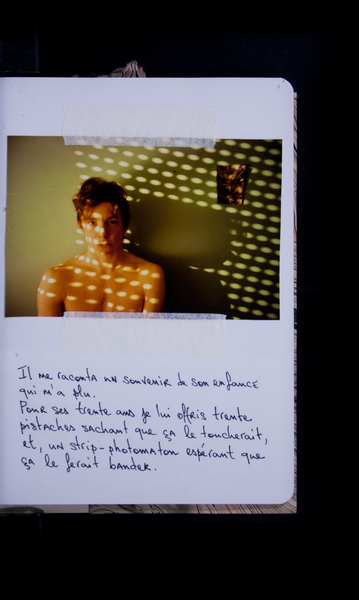 Il me raconta un souvenir de son enfance
qui m'a plu.
Pour ses trente ans je lui offris trente
pistaches sachant que ça le toucherait,
et, un strip-photomaton espérant que
ça le ferait bander.